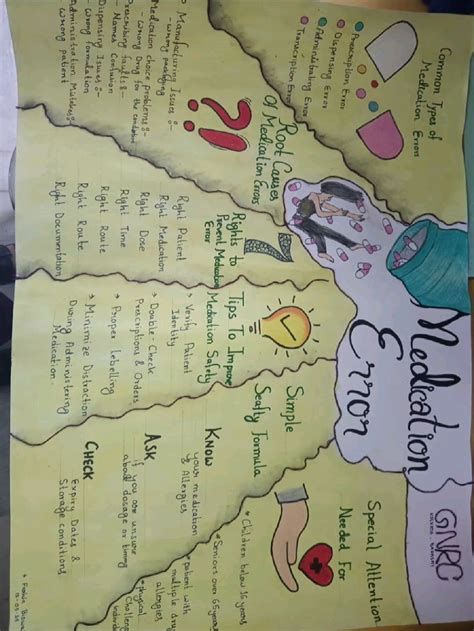 GNRC
Medication
Error
Common Types of
Medication Error
Prescription Error
Dispensing Error
Administrating Error
Transcription Error
Root Causes
Of Medication Errors
* Manufacturing Issues :-
- wrong packaging
* Medication choice problems :-
- Wrong Drug for the condition
* Prescribing faults :-
- Names Confusion
* Dispensing Issues :-
- Wrong formulation
* Administration Mistakes :-
- wrong patient
Rights to
Prevent Medication
Error
Right Patient
Right Medication
Right Dose
Right Time
Right Route
Right Route
Right Documentation
Tips To Improve
Medication Safety
* Verify Patient
Identity
* Double-Check
Prescriptions & Orders
* Proper Labelling
* Minimize Distraction
During Administering
Medication.
Simple
Seafty Formula
KNOW
your medication
& Allergies
ASK
if you are unsure
about dosage or timing
CHECK
Expiry Dates &
Storage conditions
Special Attention
Needed For
* Children below 16 years
* Seniors over 65 years
* patient with
multiple drug
* physical
Challenge